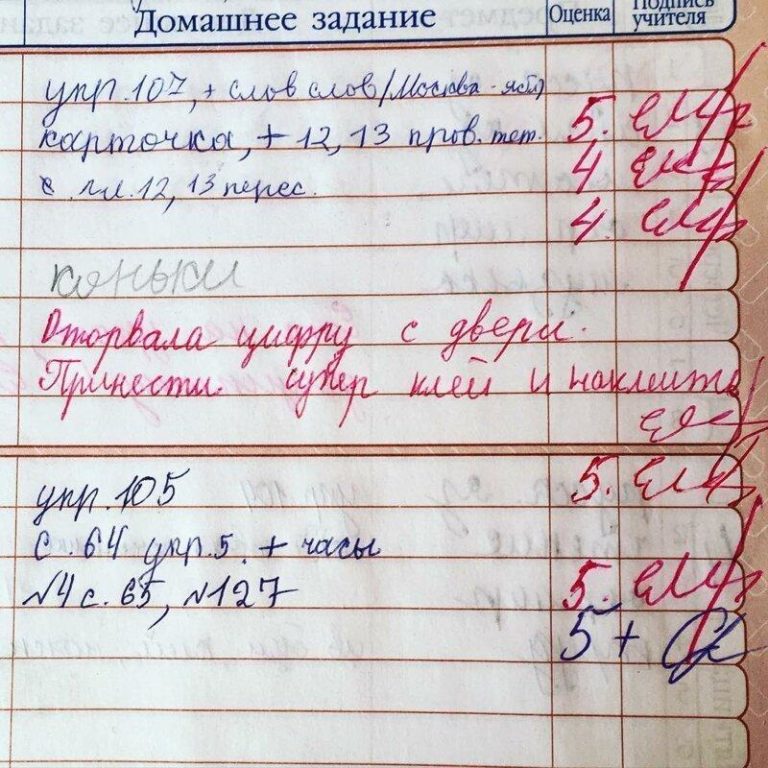 Домашнее задание Оценка Подпись учителя
упр. 107, + слов слов (Москва - ябл)
карточка, + 12, 13 пров. тет. 5.
с. 12, 13 перес. 4
4.
коньки
Оторвала цифру с двери.
Принести супер клей и наклеить
упр. 105 5.
с. 64 упр. 5. + часы
№4 с. 65, №127 5.
5+